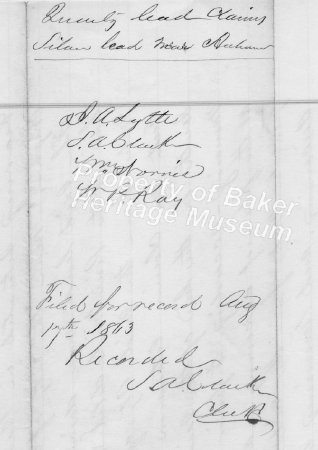 Quartz lead Claims
Silver lead near Auburn
J. A. Lytle
S. A. Clarke
Wm Norris
W. P. Ray
Property of Baker
Heritage Museum
Filed for record Aug
17th 1863
Recorded
S A Clarke
Clerk